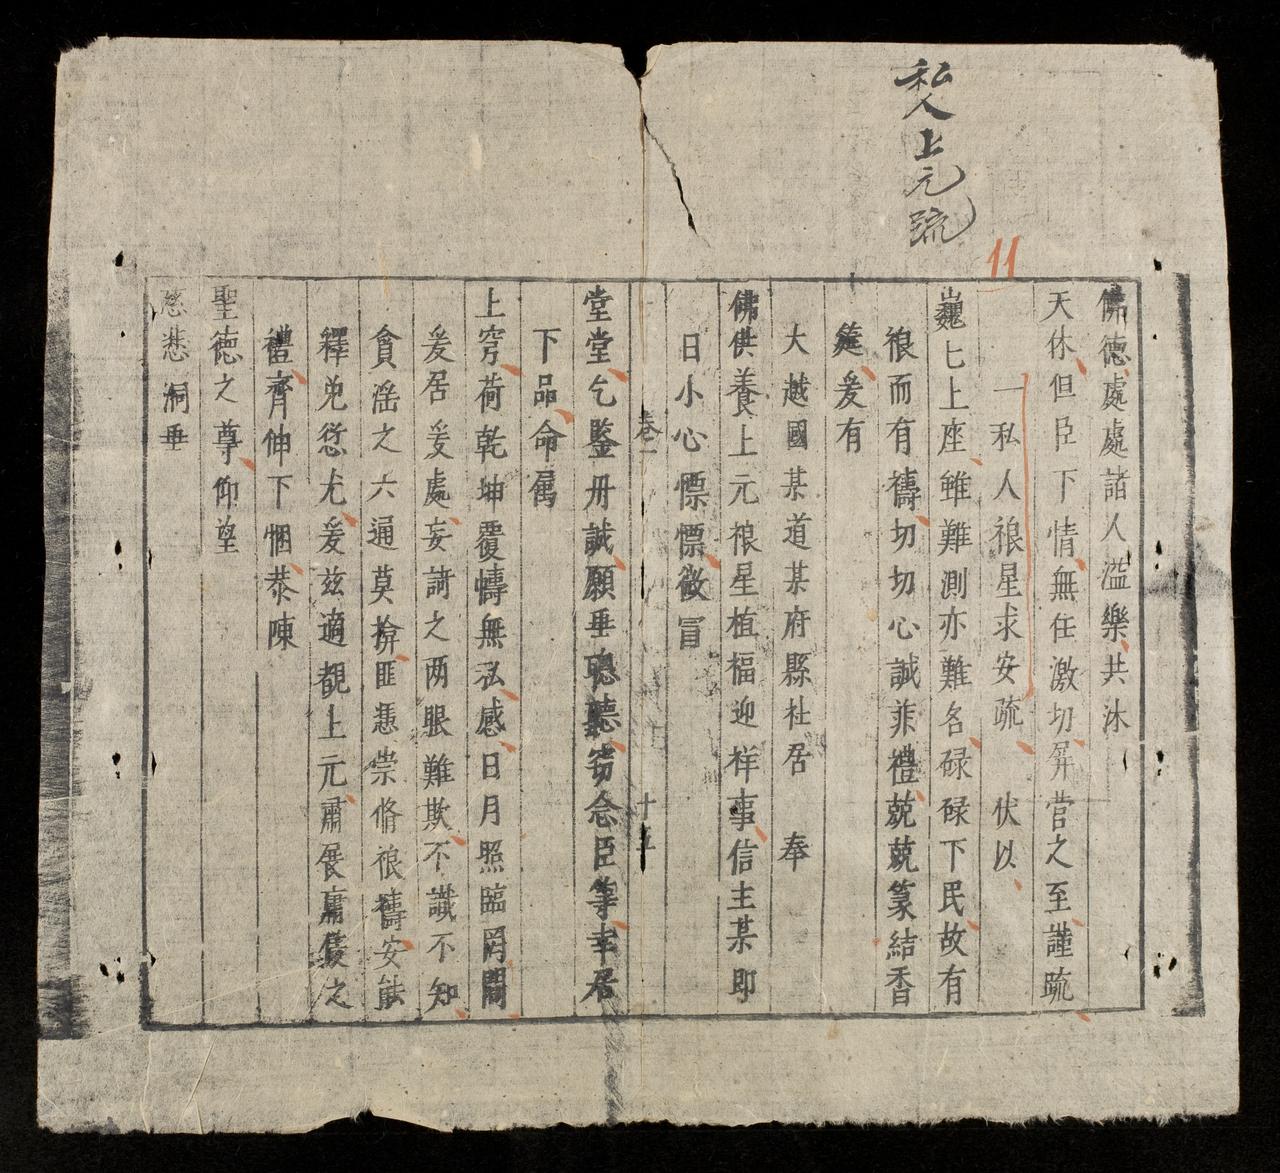 私人上元疏
11
佛德處處諸人溢樂共沐
天休但臣下情無任激切屏营之至謹疏
一私人禳星求安疏 伏以
巍匕上座雖難測亦難名碌碌下民故有
禳而有禱切切心誠菲禮兢兢篆結香
筵爰有
大越國某道某府縣社居 奉
佛供養上元禳星植福迎祥事信主某即
日小心慓慓微冒
卷一 十五
堂堂乞鑒丹誠願垂聰聽窃念臣等幸居
下品命属
上穹荷乾坤覆幬無私感日月照臨罔間
爰居爰處妄請之两眼難欺不識不知
貪淫之六通莫揜匪慿崇脩禳禱安能
釋兑愆尤爰兹適覩上元肅展庸
禮齊伸下悃恭陳
聖德之尊仰望
慈悲洞垂